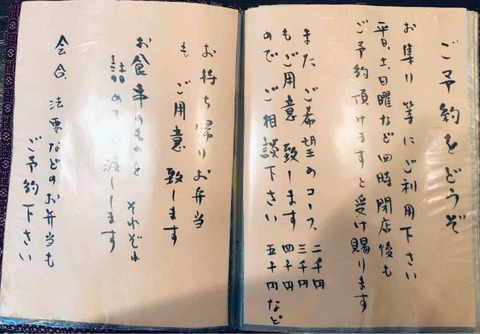 ご予約をどうぞ
お集り等にご利用下さい
平日、土日曜など四時閉店後も
ご予約頂けますと受け賜ります
また ご希望のコース
もご用意致します
ので ご相談下さい
二千円
三千円
四千円
五千円など
お持ち帰りお弁当
も ご用意 致します
お食事のものを それぞれ
詰めてお渡しします
会合、法要などのお弁当も
ご予約下さい